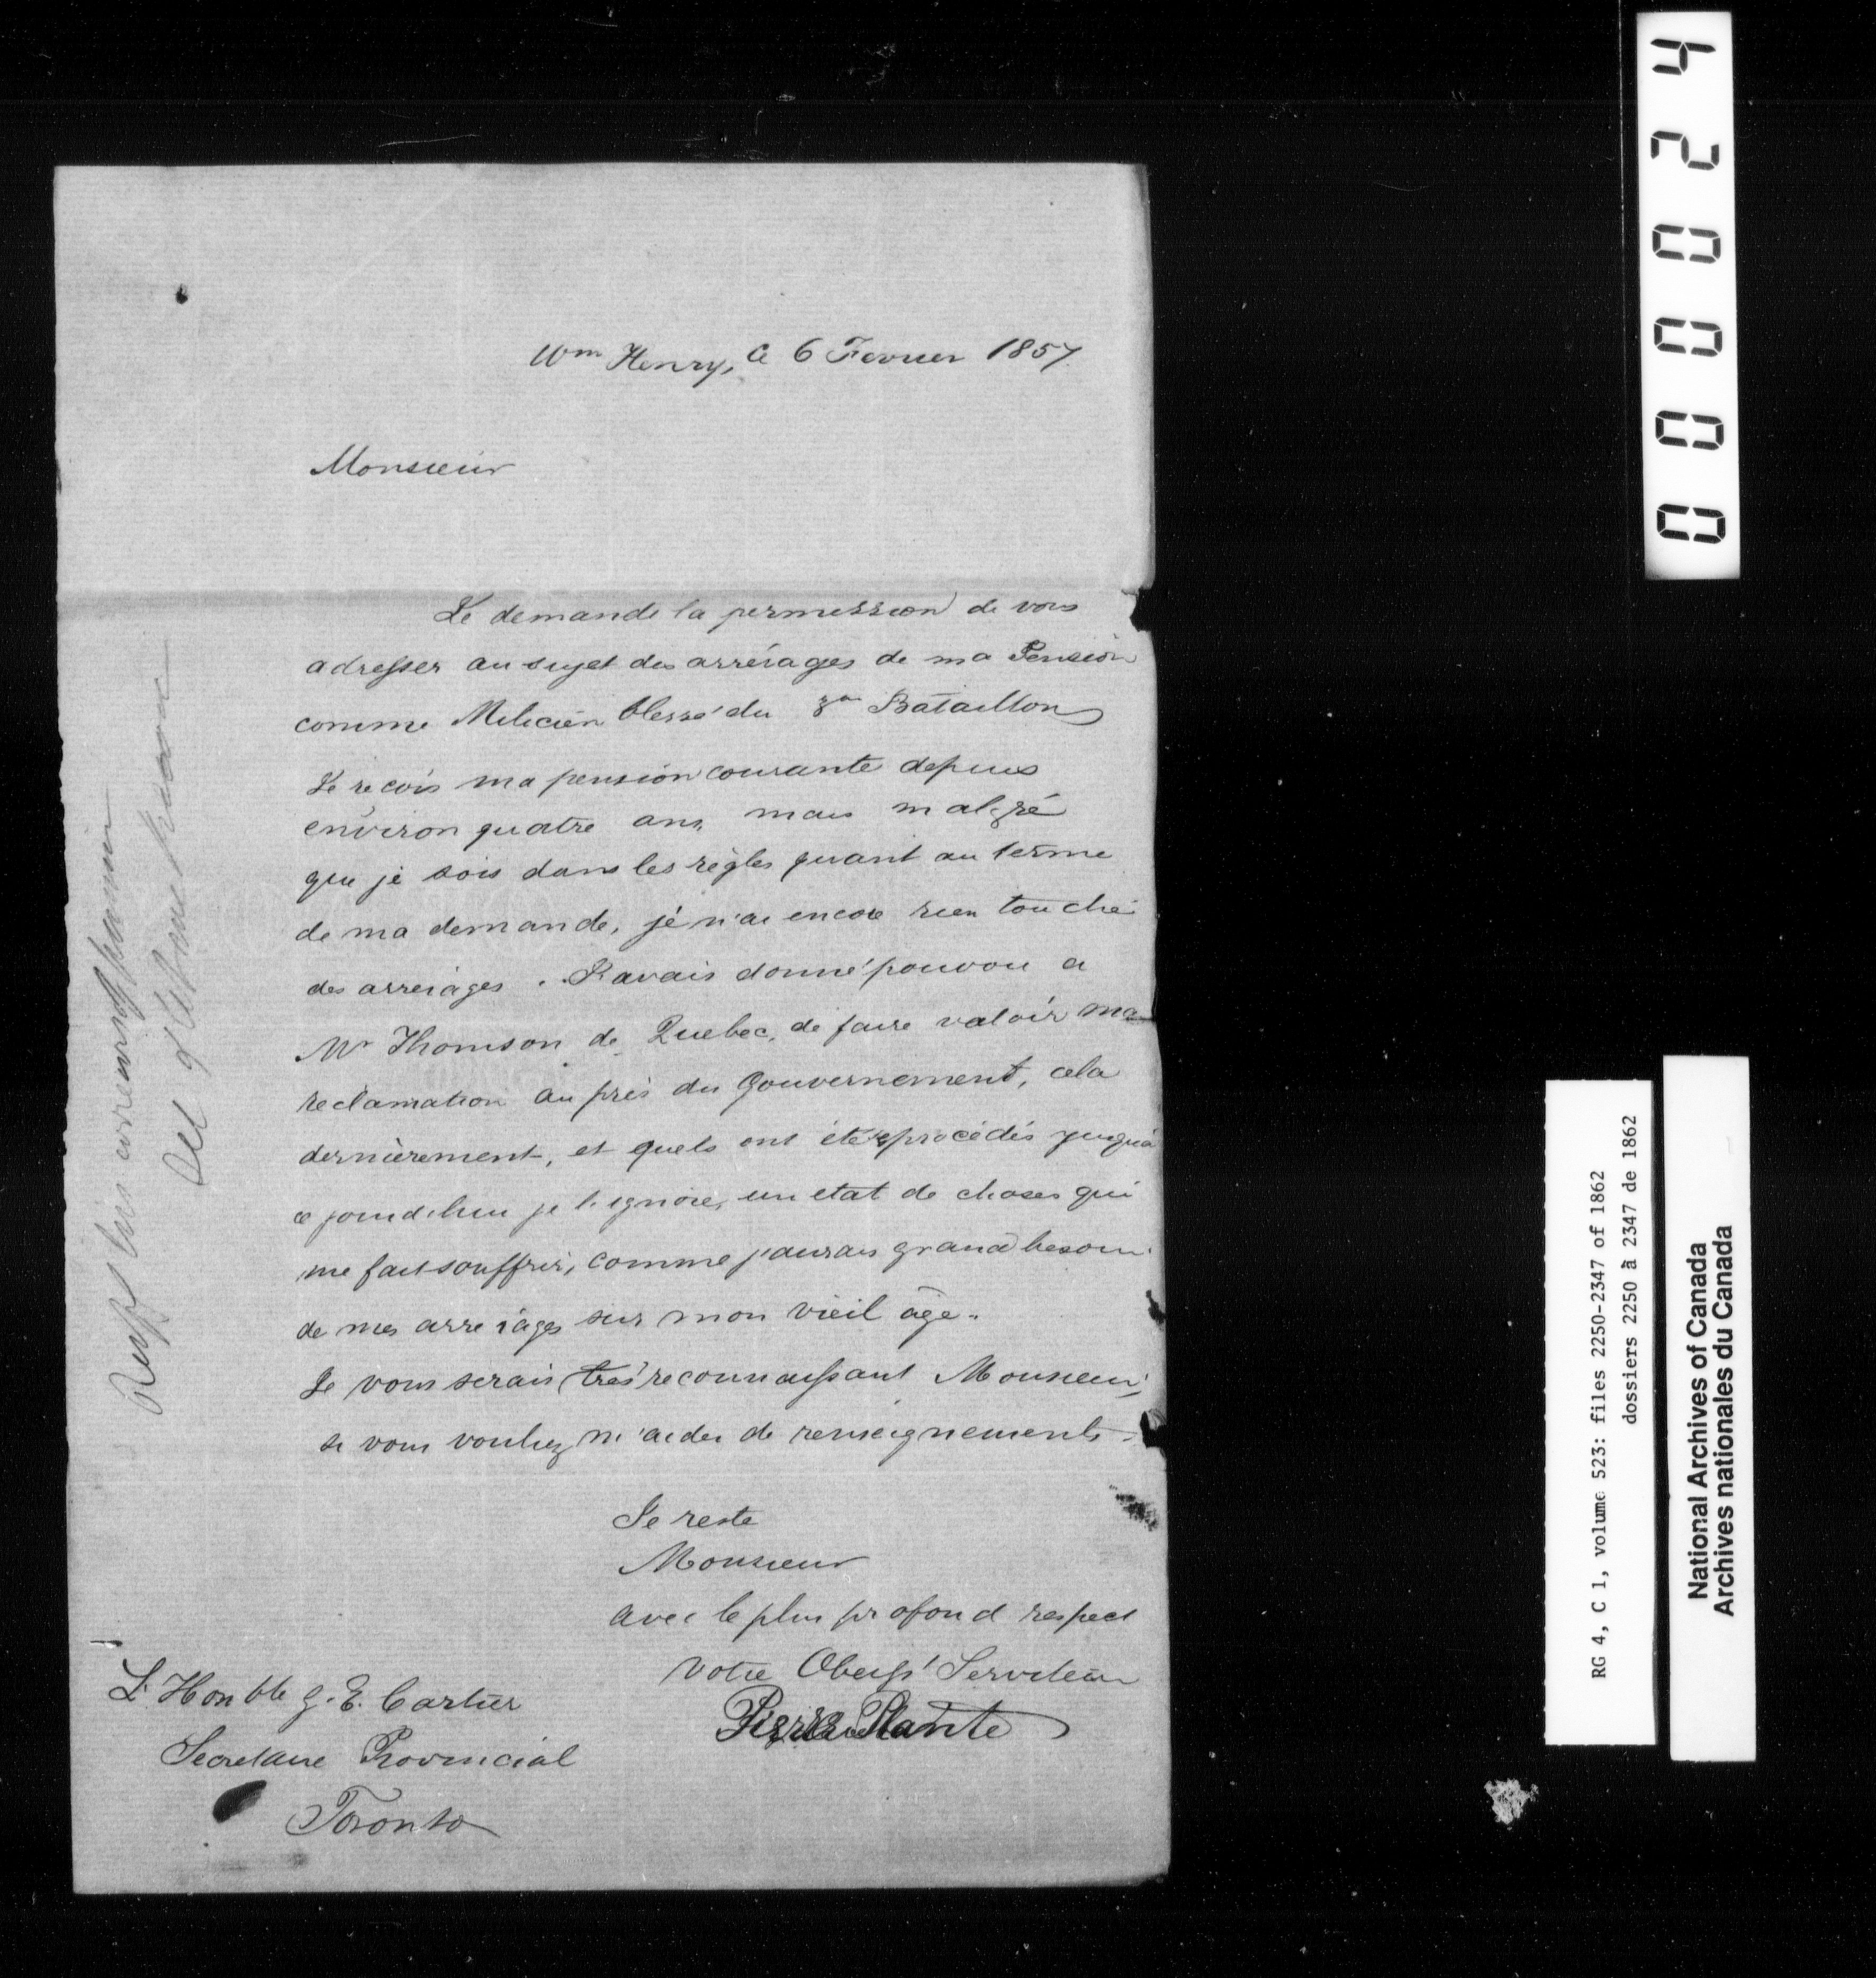 Wm Henry, ce 6 Fevrier 1857.
Monsieur
Je demande la permission de vous
adresser au sujet des arrérages de ma Pension
comme Milicien blessé du 3me Bataillon
Je reçois ma pension courante depuis
environ quatre ans, mais malgré
que je sois dans les règles quant au terme
de ma demande, je n'ai encore rien touché
des arrerages. J'avais donné pouvoir a
Mr Thomson de Quebec, de faire valoir ma
reclamation auprès du Gouvernement, cela
dernièrement, et quels ont été procédés jusqu'à
ce jourd'hui je l'ignore, un etat de choses qui
me fait souffrir, comme j'aurais grand besoin
de mes arrerages sur mon vieil âge.
Je vous serais très reconnaissant Monsieur,
si vous vouliez m'aider de renseignements.
Je reste
Monsieur
avec le plus profond respect
Votre Obeisst Serviteur
Pierre Plante
L'Honble G. E. Cartier
Secretaire Provincial
Toronto
000024
RG 4, C 1, volume 523: files 2250-2347 of 1862
dossiers 2250 à 2347 de 1862
National Archives of Canada
Archives nationales du Canada